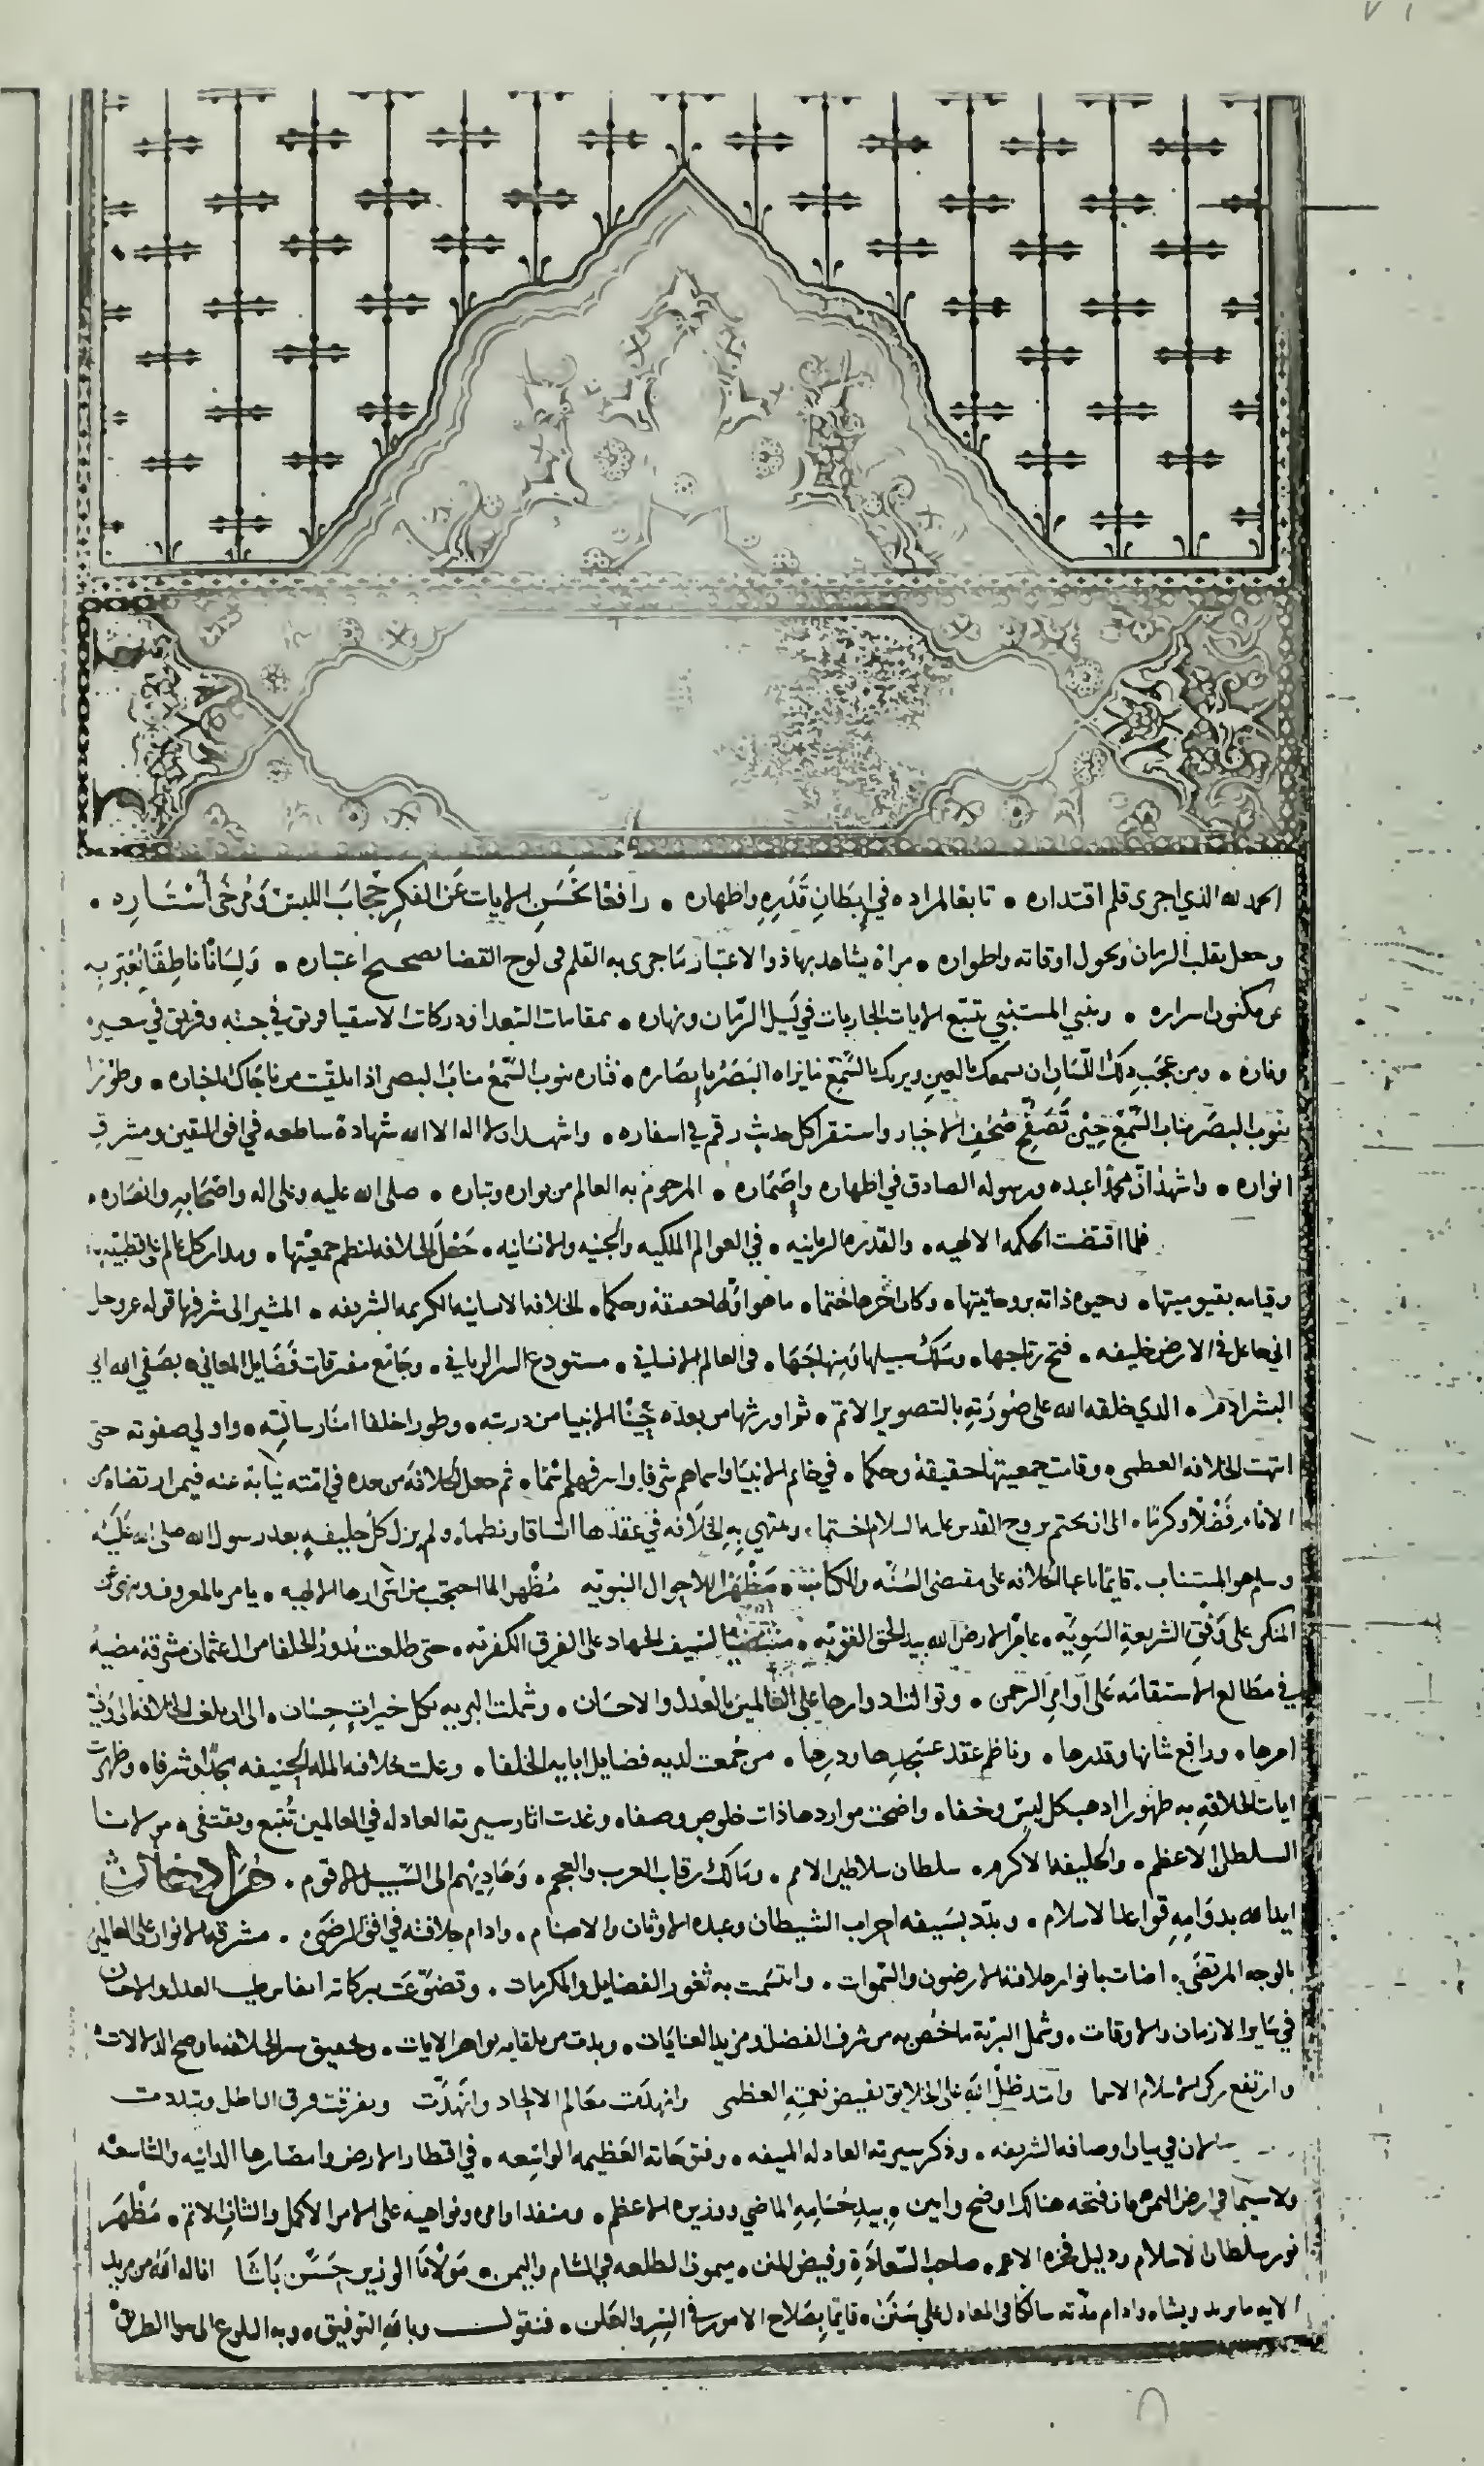 الحمد لله الذي اجرى قلم اقتداره • تابعا لمراده في ابطان قدره واظهاره • رافعا بحسن الايات عن الفكر حجاب اللبس ومرخى أستاره •
وجعل تقلب الزمان وتحول اوقاته واطواره • مراة يشاهد بها ذوا الاعتبار ما جرى به القلم في لوح القضا بصحيح اعتباره • ولسانا ناطقا يعبر به
عن مكنون اسراره • وينبي المستنبي بتتبع الايات الجاريات في ليل الزمان ونهاره • بمقامات السعدا ودركات الاشقيا فريق في جنته وفريق في سعيره
وناره • ومن عجب ذلك اللسان ان يسمعك بالعين ويريك بالسمع ما يراه البصر بابصاره • فتاره ينوب السمع مناب البصر اذا تلقيت من ناجاك باخباره • وطورا
ينوب البصر مناب السمع حين تصفح صحف الاخبار واستقرا كل حديث رقم في اسفاره • واشهد ان لا اله الا الله شهادة ساطعه في افق اليقين ومشرق
انواره • واشهد ان محمدا عبده ورسوله الصادق في اظهاره واضماره • المرحوم به العالم من بواره وتباره • صلى الله عليه وعلى اله واصحابه وانصاره •
فلما اقتضت الحكمه الالهيه • والقدره الربانيه • في العوالم الملكيه والجنيه والانسانيه • جعل الخلافه لنظم جمعيتها • ومدار كل عالم على قطبيته
وقيامه بقيوميتها • وحيوه ذاته بروحانيتها • وكان اخرها ختما • ما هو اولها حقيقة وحكما • الخلافه الانسانيه الكريمه الشريفه • المشير الى شرفها قوله عز وجل
اني جاعل في الارض خليفه • فتح رتاجها • وسلك سبيلها ومنهاجها • في العالم الانساني • مستودع السر الرباني • وجامع مفرقات فضايل المعاني • بصفي الله ابي
البشر ادم • الذي خلقه الله على صورته بالتصوير الاتم • ثم اورثها من بعده حينا الانبيا من ذريته • وطورا خلفا امنا رسالته • واولي صفوته حتى
انتهت الخلافه العظمى • وقامت جمعيتها حقيقة وحكما • في خاتم الانبيا واسماهم شرفا واشرفهم اسما • ثم جعل الخلافه من بعده في امته نيابة عنه فيمن ارتضاه من
الانام فضلا وكرما • الى ان تختم بروح القدس عليه السلام اختتما • وتنتهي به الخلافه في عقدها اتساقا ونظما • ولم يزل كل خليفه بعد رسول الله صلى الله عليه
وسلم هو المستناب • قايما باعبا الخلافه على مقتضى السنه والكتاب • مظهرا للاحوال النبويه مظهرا لما احتجب من اسرارها الالهيه • يامر بالمعروف وينهى عن
المنكر على وفق الشريعة السويه • عامرا لارض الله بيد الحق القويه • منتضيا لسيف الجهاد على الفرق الكفريه • حتى طلعت بدور الخلفا من ال عثمان مشرقة مضيه
في مطالع الاستقامه على اوامر الرحمن • وتوالت ادوارها على العالمين بالعدل والاحسان • وشملت البريه بكل خيرات حسان • الى ان بلغت الخلافه الى ولي
امرها • ورافع شانها وقدرها • وناظم عقد عسجدها ودرها • من جمعت لديه فضايل ابايه الخلفا • وعلت بخلافته المله الحنيفه مجدا وشرفا • وظهرت
ايات الخلافه به ظهورا اذهب كل لبس وخفا • واضحت مواردها ذات خلوص وصفا • وغدت اثار سيرته العادله في العالمين تتبع وتقتفى • مولانا
السلطان الاعظم • والخليفه الاكرم • سلطان سلاطين الامم • ومالك رقاب العرب والعجم • وهاديهم الى السبيل الاقوم • مراد خان
ايد الله بدوامه قواعد الاسلام • وبدد بسيفه احزاب الشيطان وعبدة الاوثان والاصنام • وادام خلافته في افق الرضى • مشرقه الانوار على العالمين
بالوجه المرتضى • اضات بانوار خلافته الارضون والسموات • وابتسمت به ثغور الفضايل والمكرمات • وتضوعت ببركاته انفاس طيب العدل والاحسان
في ساير الازمان والاوقات • وشمل البرية ما خص به من شرف الفضل ومزيد العنايات • وبدت من تلقايه بواهر الايات • وتحقيق سر الخلافه باوضح الدلالات
وارتفع ركن الاسلام الاسما وامتد ظل الله على الخلايق بفيض نعمته العظمى وانهدمت معالم الالحاد وانهدت وتفرقت فرق الباطل وتبددت
في بيان اوصافه الشريفه • وذكر سيرته العادله المنيفه • وفتوحاته العظيمه الواسعه • في اقطار الارض وامصارها الدانيه والشاسعه
ولا سيما في ارض اليمن فان فتحه هنالك اوضح وابين • بيد حسامه الماضي ووزيره الاعظم • ومنفذ اوامره ونواهيه على الامر الاكمل والشان الاتم • مظهر
نور سلطان الاسلام ودليل فخره الاعم • صاحب السعادة وفيض المنن • ميمون الطلعه في الشام واليمن • مولانا الوزير حسن باشا اناله الله من مزيد
الايه ما يريد ويشاء وادام مدته سالكا في المعادل على سنن • قايما بصلاح الامور في السر والعلن • فنقول وبالله التوفيق • وبه البلوغ الى سوا الطريق